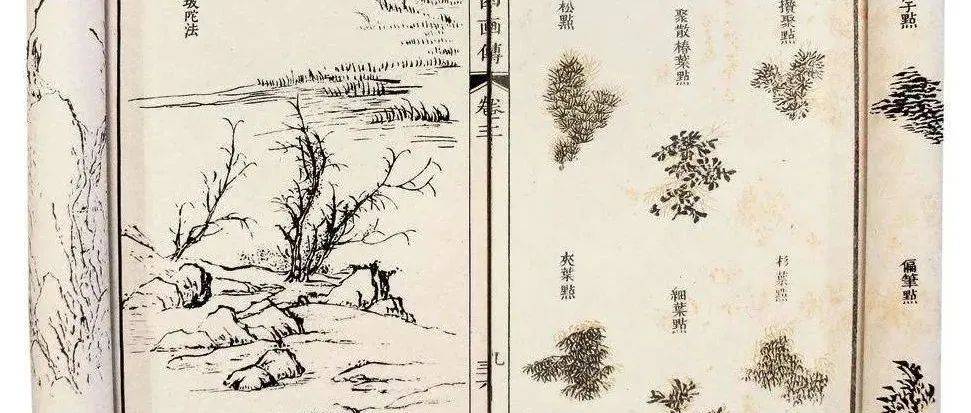 點
偏筆點
攢聚點
杉葉點
聚散椿葉點
細葉點
松點
夾葉點
画傳
卷三
九
坡陀法